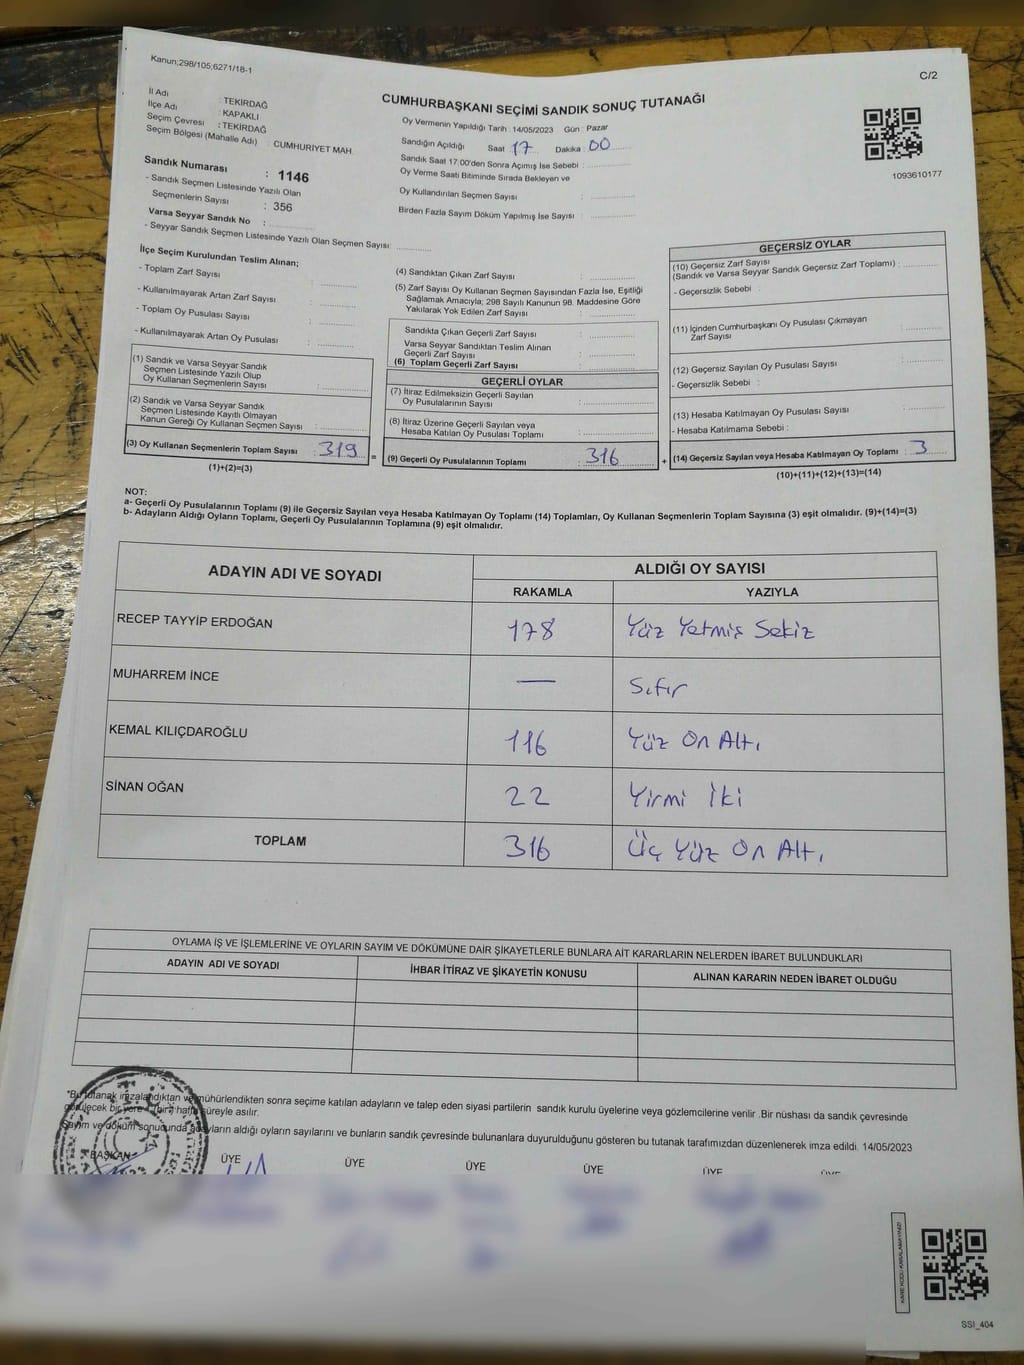 Kanun;298/105;6271/18-1
C/2
CUMHURBAŞKANI SEÇİMİ SANDIK SONUÇ TUTANAĞI
İl Adı : TEKİRDAĞ
İlçe Adı : KAPAKLI
Seçim Çevresi : TEKİRDAĞ
Seçim Bölgesi (Mahalle Adı) : CUMHURİYET MAH.
Sandık Numarası : 1146
- Sandık Seçmen Listesinde Yazılı Olan
Seçmenlerin Sayısı : 356
Varsa Seyyar Sandık No :
- Seyyar Sandık Seçmen Listesinde Yazılı Olan Seçmen Sayısı:
Oy Vermenin Yapıldığı Tarih : 14/05/2023 Gün : Pazar
Sandığın Açıldığı Saat 17 Dakika : 00
Sandık Saat 17:00'den Sonra Açımış İse Sebebi :
Oy Verme Saati Bitiminde Sırada Bekleyen ve
Oy Kullandırılan Seçmen Sayısı :
Birden Fazla Sayım Döküm Yapılmış İse Sayısı :
1093610177
İlçe Seçim Kurulundan Teslim Alınan;
- Toplam Zarf Sayısı :
- Kullanılmayarak Artan Zarf Sayısı :
- Toplam Oy Pusulası Sayısı :
- Kullanılmayarak Artan Oy Pusulası :
(1) Sandık ve Varsa Seyyar Sandık
Seçmen Listesinde Yazılı Olup
Oy Kullanan Seçmenlerin Sayısı :
(2) Sandık ve Varsa Seyyar Sandık
Seçmen Listesinde Kayıtlı Olmayan
Kanun Gereği Oy Kullanan Seçmen Sayısı :
(3) Oy Kullanan Seçmenlerin Toplam Sayısı : 319 =
(1)+(2)=(3)
(4) Sandıktan Çıkan Zarf Sayısı :
(5) Zarf Sayısı Oy Kullanan Seçmen Sayısından Fazla İse, Eşitliği
Sağlamak Amacıyla; 298 Sayılı Kanunun 98. Maddesine Göre
Yakılarak Yok Edilen Zarf Sayısı :
Sandıkta Çıkan Geçerli Zarf Sayısı :
Varsa Seyyar Sandıktan Teslim Alınan
Geçerli Zarf Sayısı :
(6) Toplam Geçerli Zarf Sayısı :
GEÇERLİ OYLAR
(7) İtiraz Edilmeksizin Geçerli Sayılan
Oy Pusulalarının Sayısı :
(8) İtiraz Üzerine Geçerli Sayılan veya
Hesaba Katılan Oy Pusulası Toplamı :
(9) Geçerli Oy Pusulalarının Toplamı : 316 +
GEÇERSİZ OYLAR
(10) Geçersiz Zarf Sayısı
(Sandık ve Varsa Seyyar Sandık Geçersiz Zarf Toplamı) :
- Geçersizlik Sebebi :
(11) İçinden Cumhurbaşkanı Oy Pusulası Çıkmayan
Zarf Sayısı :
(12) Geçersiz Sayılan Oy Pusulası Sayısı :
- Geçersizlik Sebebi :
(13) Hesaba Katılmayan Oy Pusulası Sayısı :
- Hesaba Katılmama Sebebi :
(14) Geçersiz Sayılan veya Hesaba Katılmayan Oy Toplamı : 3
(10)+(11)+(12)+(13)=(14)
NOT:
a- Geçerli Oy Pusulalarının Toplamı (9) ile Geçersiz Sayılan veya Hesaba Katılmayan Oy Toplamı (14) Toplamları, Oy Kullanan Seçmenlerin Toplam Sayısına (3) eşit olmalıdır. (9)+(14)=(3)
b- Adayların Aldığı Oyların Toplamı, Geçerli Oy Pusulalarının Toplamına (9) eşit olmalıdır.
ADAYIN ADI VE SOYADI ALDIĞI OY SAYISI
RAKAMLA YAZIYLA
RECEP TAYYİP ERDOĞAN 178 Yüz Yetmiş Sekiz
MUHARREM İNCE — Sıfır
KEMAL KILIÇDAROĞLU 116 Yüz On Altı
SİNAN OĞAN 22 Yirmi İki
TOPLAM 316 Üç Yüz On Altı
OYLAMA İŞ VE İŞLEMLERİNE VE OYLARIN SAYIM VE DÖKÜMÜNE DAİR ŞİKAYETLERLE BUNLARA AİT KARARLARIN NELERDEN İBARET BULUNDUKLARI
ADAYIN ADI VE SOYADI İHBAR İTİRAZ VE ŞİKAYETİN KONUSU ALINAN KARARIN NEDEN İBARET OLDUĞU
"Bu tutanak imzalandıktan ve mühürlendikten sonra seçime katılan adayların ve talep eden siyasi partilerin sandık kurulu üyelerine veya gözlemcilerine verilir .Bir nüshası da sandık çevresinde
görülecek bir yere 1 (bir) hafta süreyle asılır.
Sayım ve döküm sonucunda adayların aldığı oyların sayılarını ve bunların sandık çevresinde bulunanlara duyurulduğunu gösteren bu tutanak tarafımızdan düzenlenerek imza edildi. 14/05/2023
BAŞKAN ÜYE ÜYE ÜYE ÜYE ÜYE ÜYE
KARE KODU KARALAMAYINIZ!
SSI_404